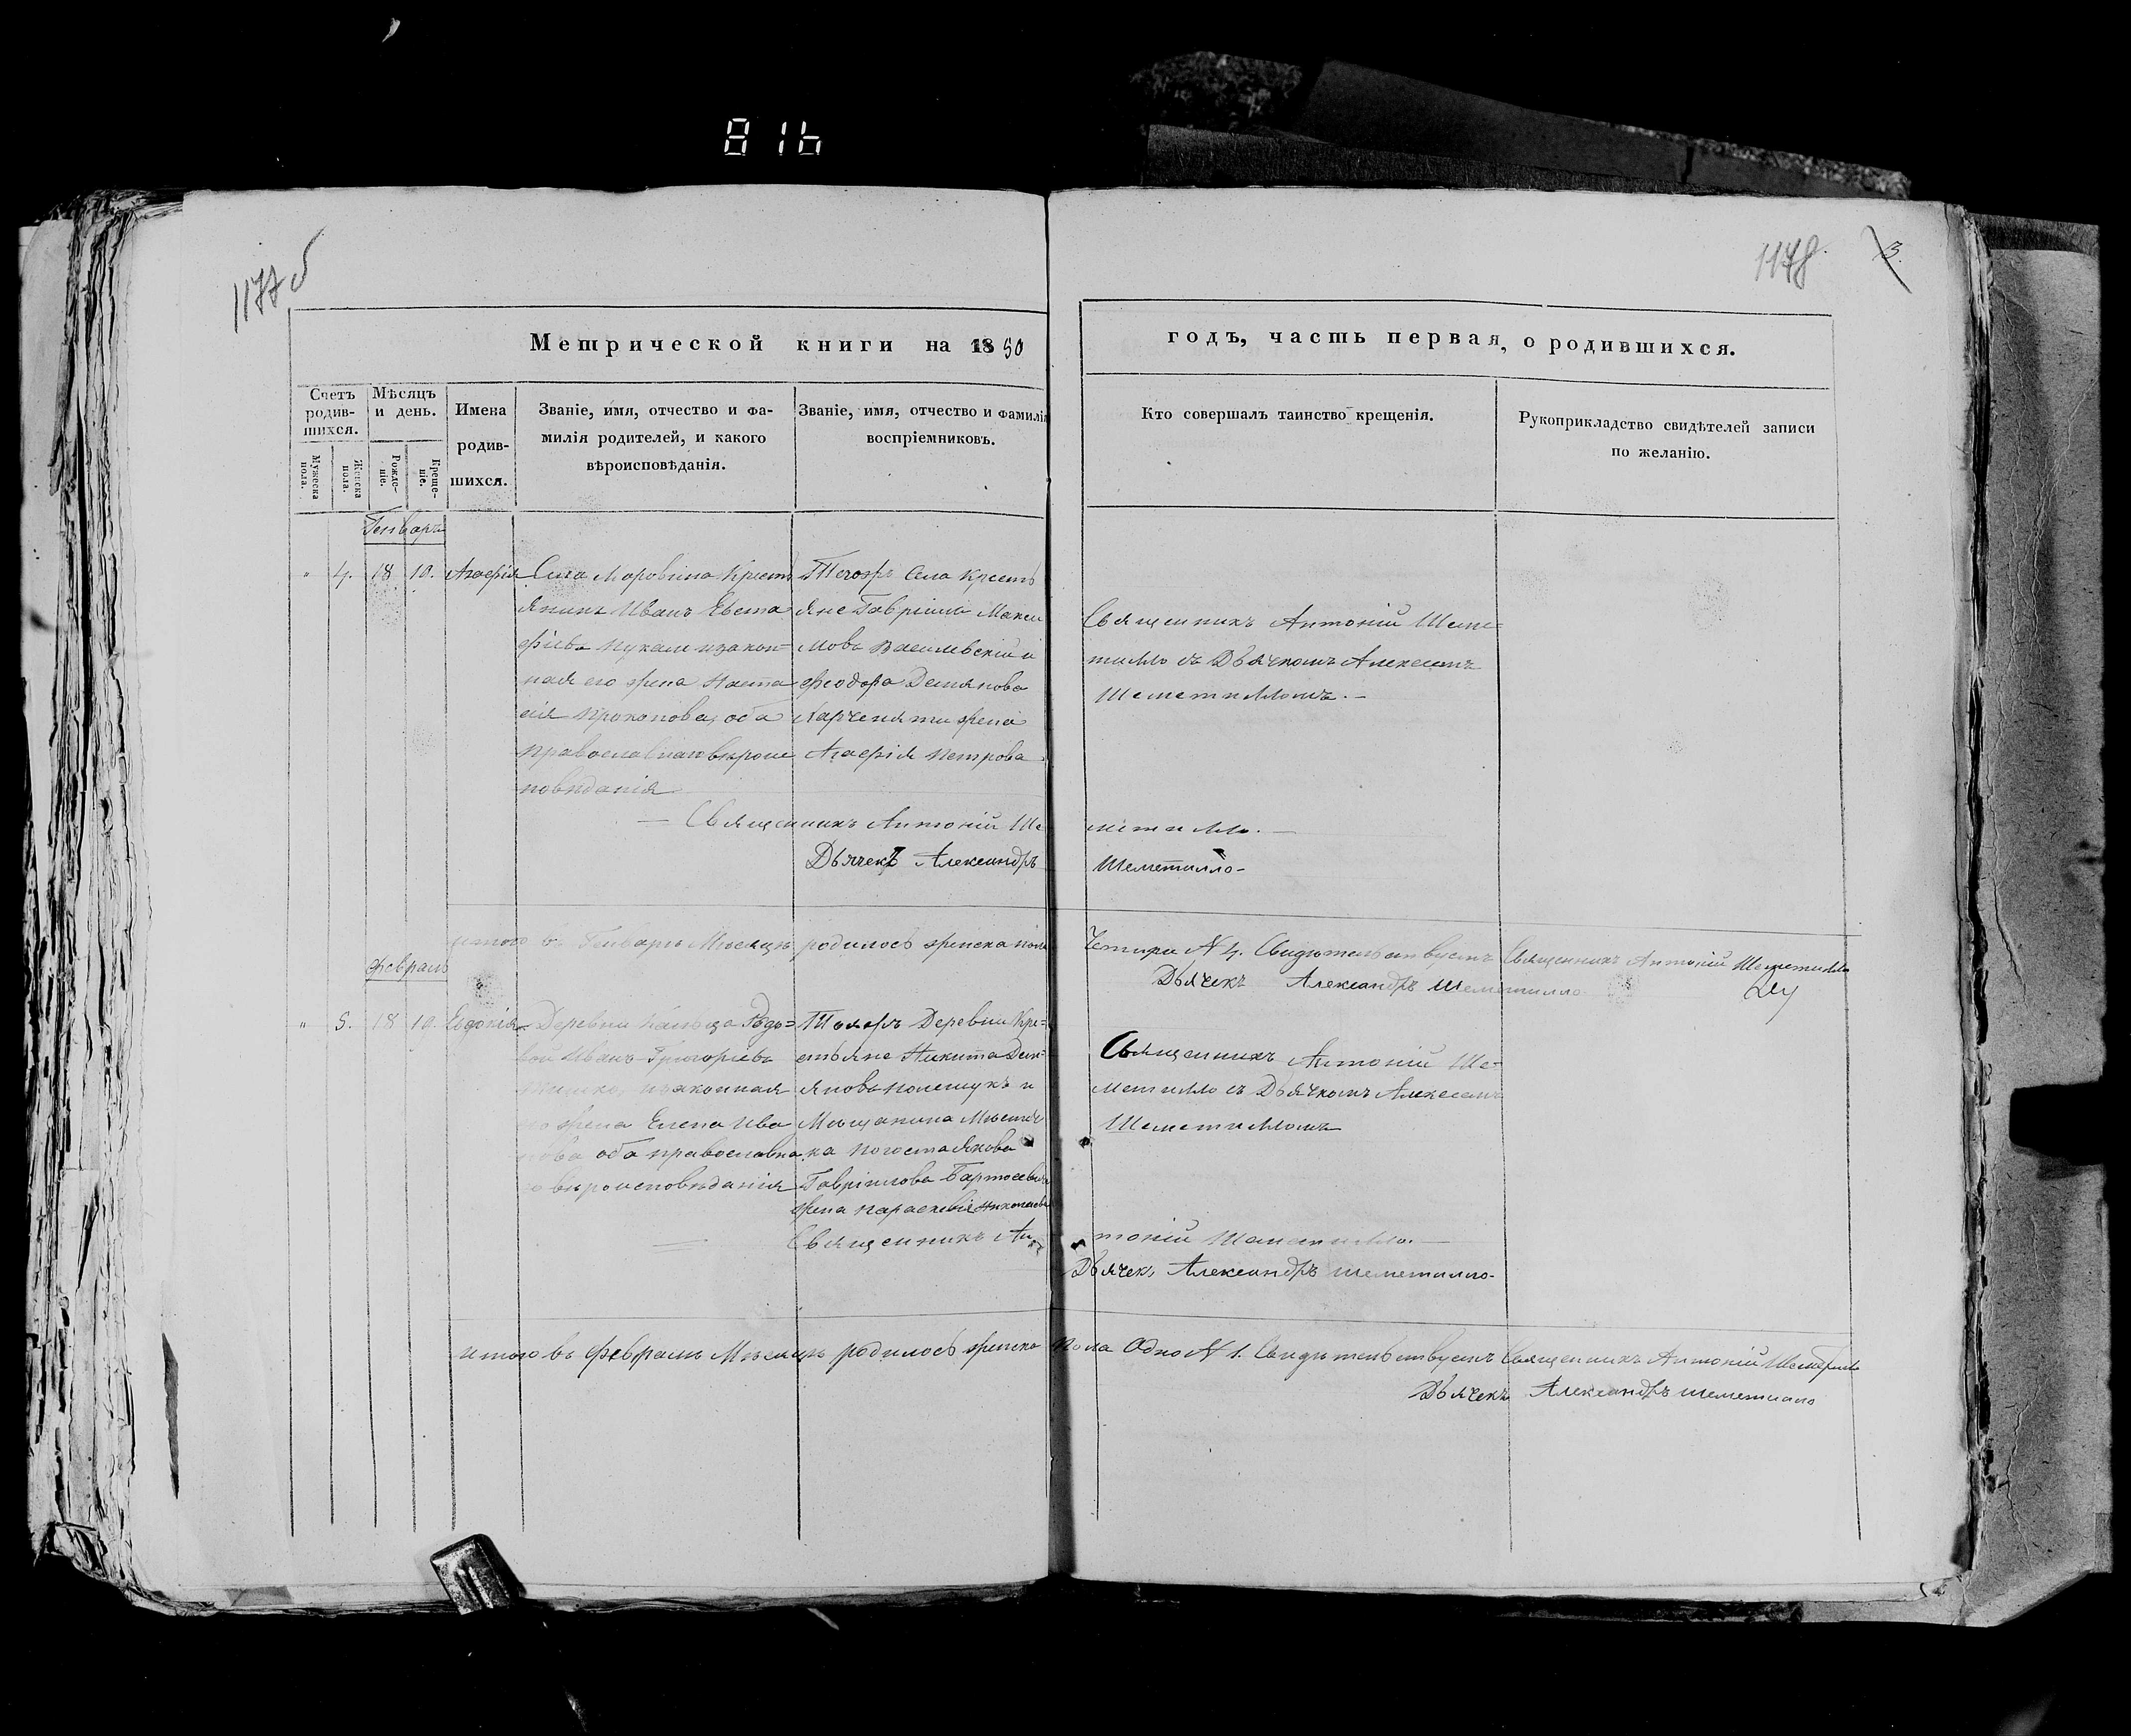 816
1177 об
1178.
3.
Метрической книги на 1850
годъ, часть первая, о родившихся.
Счетъ родив-шихся.
Мужеска пола.
Женска пола.
Мѣсяцъ и день.
Рожде-ніе.
Креще-ніе.
Имена
родив-
шихся.
Званіе, имя, отчество и фа-
милія родителей, и какого
вѣроисповѣданія.
Званіе, имя, отчество и фамилія
воспріемниковъ.
Кто совершалъ таинство крещенія.
Рукоприкладство свидѣтелей записи
по желанію.
Генварь
" 4. 18 19. Агафія
Села Моровина Крестъ
янинъ Иванъ Евста
фіевъ изакон=
ная его жена Наста
сія Прокопова, оба
православнаго вѣроис
повѣданія
Тогожъ Села Кресть
яне Гавріилъ Макси
мовъ Василевскій и
Феодора Демянова
жена
Агафія Петрова
Священникъ Антоній Шеме=
тилло съ Дьячкомъ Александ
Шеметилломъ.—
— Священникъ Антоній Ше
метилло.—
Дьячекъ Александръ
Шеметилло-
итого въ Генварѣ Мѣсяцѣ родилось женска пола
Четыри № 4. Свидѣтельствуетъ Священникъ Антоній Шеметилло
Дьячекъ Александръ Шеметилло
Февраль
" 5. 18 19. Евдокія
Деревни
Иванъ Григорьевъ
изаконная
жена Елена Ива
нова оба православна
го вѣроисповѣданія
Тойжъ Деревни Кре=
стьяне Никита Дем=
яновъ Полещукъ и
Мѣщанина Мѣстеч
ка Погоста Якова
Гавріилова Бартосевича
жена Параскевія Николаева
Священникъ Антоній Ше=
метилло съ Дьячкомъ Александ
Шеметилломъ
Священникъ Ан
тоній Шеметилло.—
Дьячекъ Александръ Шеметилло-
итого въ Февралѣ Мѣсяцѣ родилось женска пола Одно № 1. Свидѣтельствуетъ Священникъ Антоній Шеметилло
Дьячекъ Александръ Шеметилло